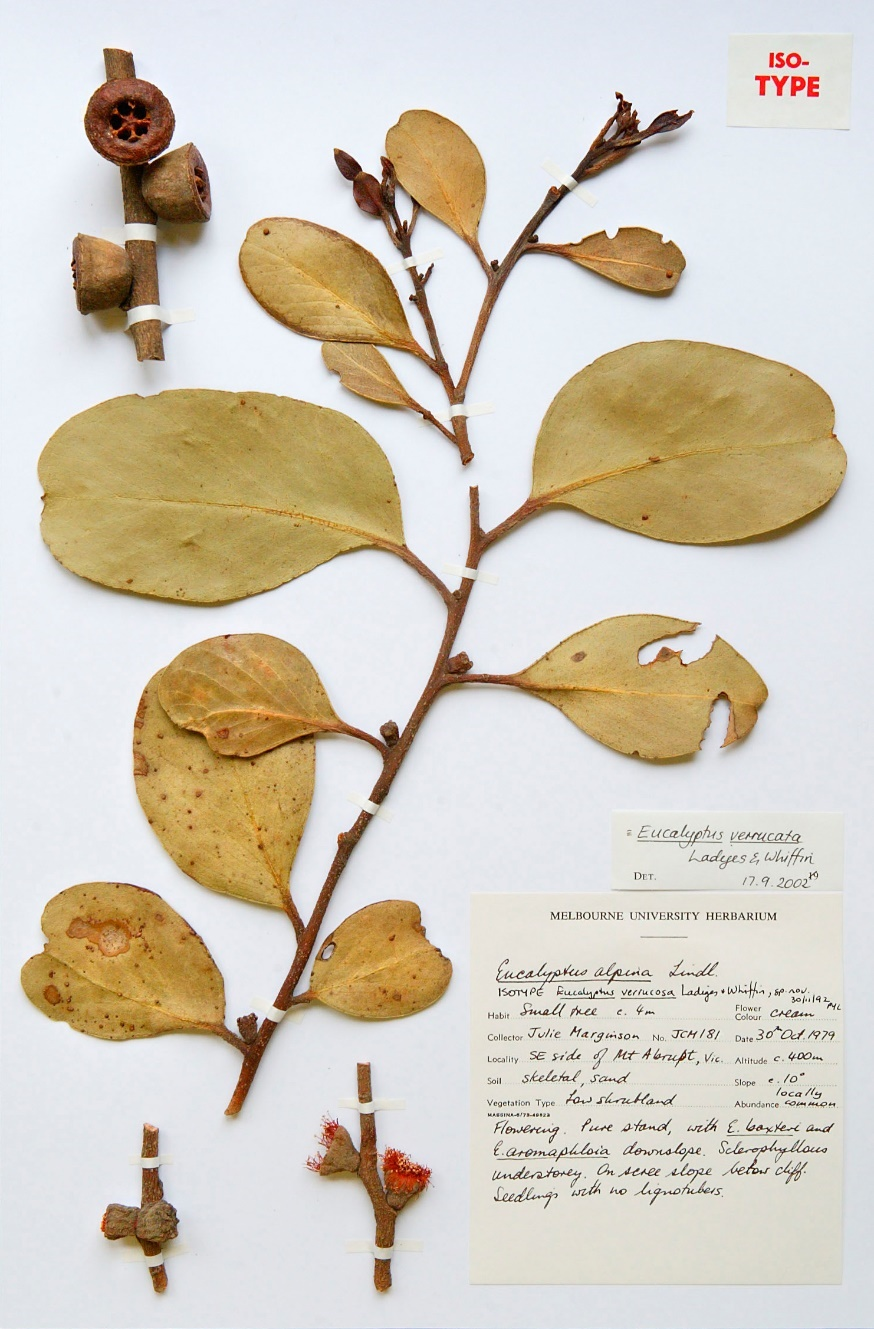 ISO-
TYPE
= Eucalyptus verrucata
Ladiges & Whiffin
DET. 17.9.2002
MELBOURNE UNIVERSITY HERBARIUM
Eucalyptus alpina Lindl.
ISOTYPE Eucalyptus verrucosa Ladiges & Whiffin, sp. nov.
30/11/92 PYL
Habit Small tree c. 4m Flower Colour cream
Collector Julie Marginson No. JCM181 Date 30th Oct. 1979
Locality SE side of Mt Abrupt, Vic. Altitude c. 400m
Soil skeletal, sand Slope c. 10°
Vegetation Type Low shrubland Abundance locally common
Flowering. Pure stand, with E. baxteri and
E. aromaphloia downslope. Sclerophyllous
understorey. On scree slope below cliff.
Seedlings with no lignotubers.